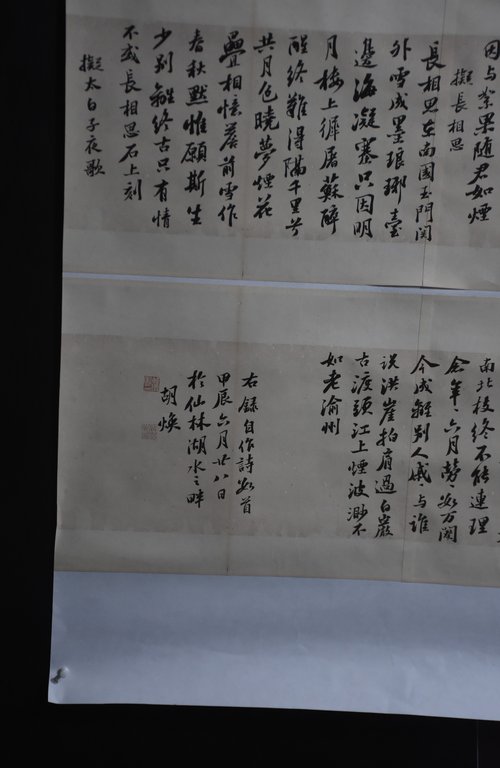 因与業果随君如煙
擬長相思
長相思在南國玉門関
外雪成墨琅琊臺
邊海凝塞只因明
月樓上屠蘇醉
醒終難得隔千里兮
共月色曉夢煙花
疊相憶落前雪作
春秋默惟願斯生
少别離終古只有情
不武長相思石上刻
擬太白子夜歌
南北枝終不能連理
余年〻六月勞〻如万闋
今成離别人戚与誰
説洪崖拍肩過白巖
古渡頭江上煙波渺不
如老渝州
右録自作詩如首
甲辰六月廿八日
於仙林湖水之畔
胡煥